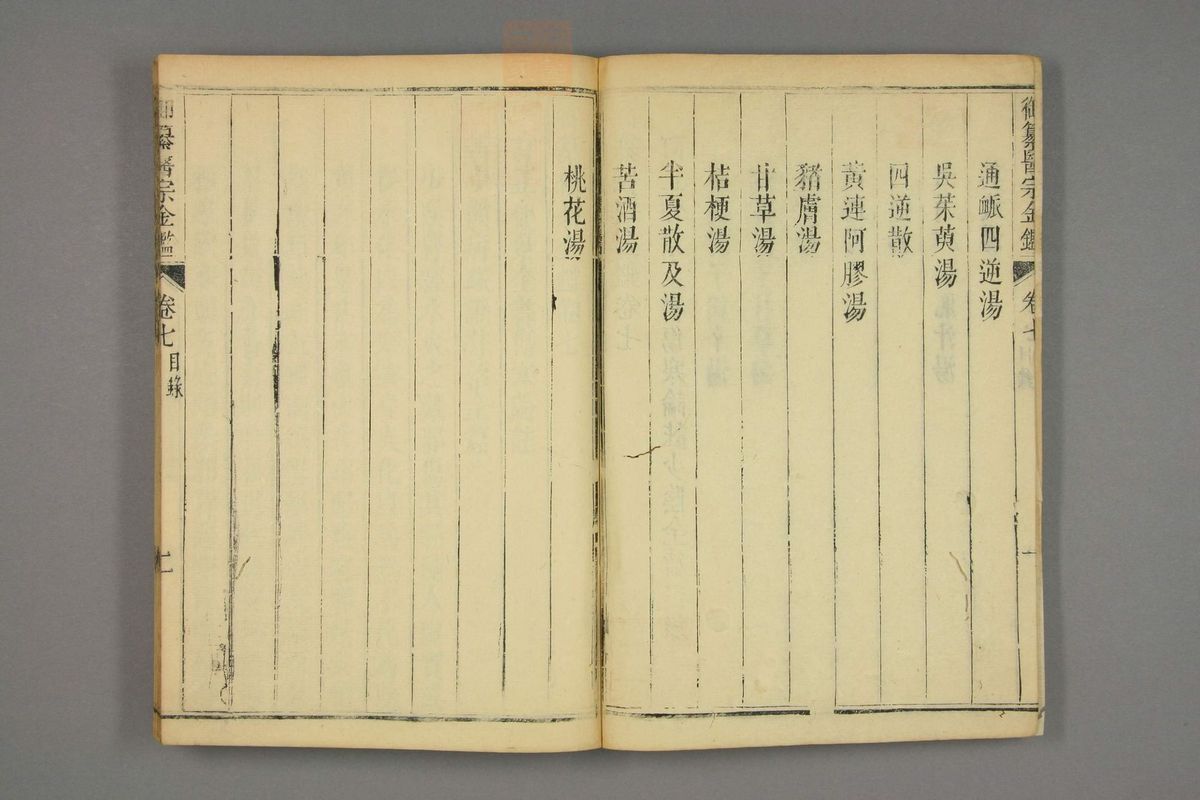 御纂醫宗金鑑
卷七
目錄
一
通衇四逆湯
吳茱萸湯
四逆散
黃連阿膠湯
豬膚湯
甘草湯
桔梗湯
半夏散及湯
苦酒湯
桃花湯
御纂醫宗金鑑
卷七
目錄